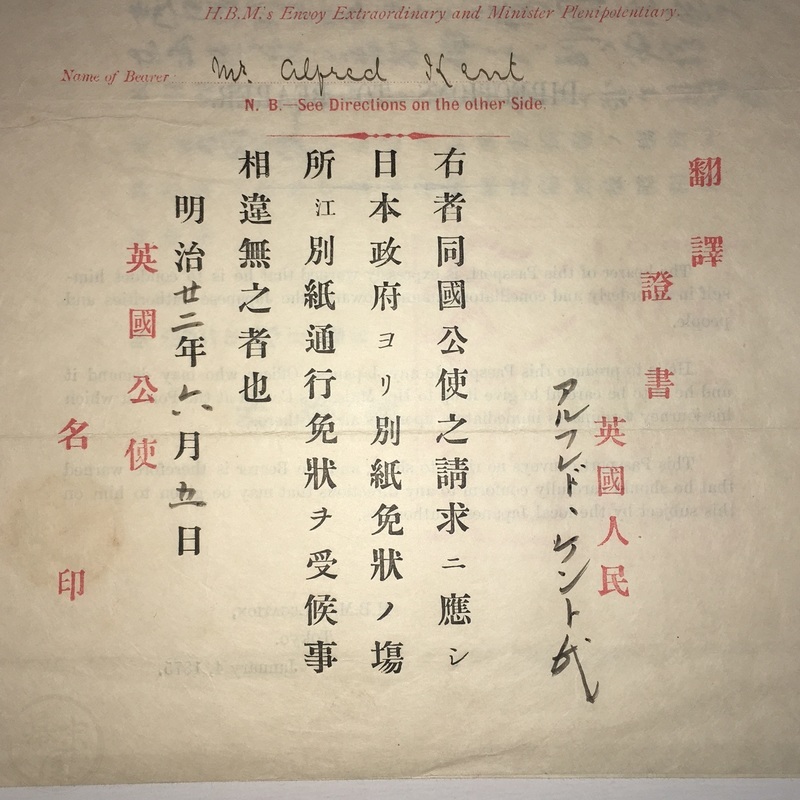 H.B.M.'s Envoy Extraordinary and Minister Plenipotentiary.
Name of Bearer Mr. Alfred Kent
N. B.—See Directions on the other Side.
翻譯
證書
英國人民
アルフレド、ケント氏
右者同國公使之請求ニ應シ
日本政府ヨリ別紙免狀ノ塲
所江別紙通行免狀ヲ受候事
相違無之者也
明治廿二年六月五日
英國公使
名印